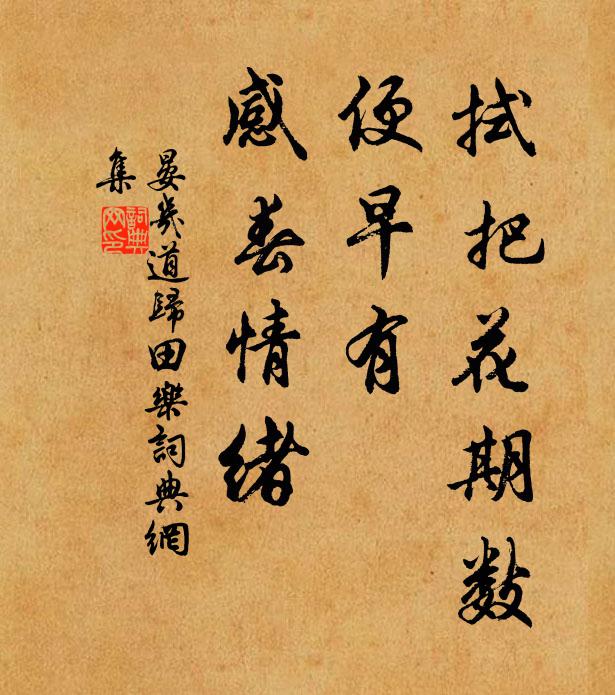 拭把花期数
便早有
感春情緒
晏幾道歸田樂詞典網
集
詞典
网印